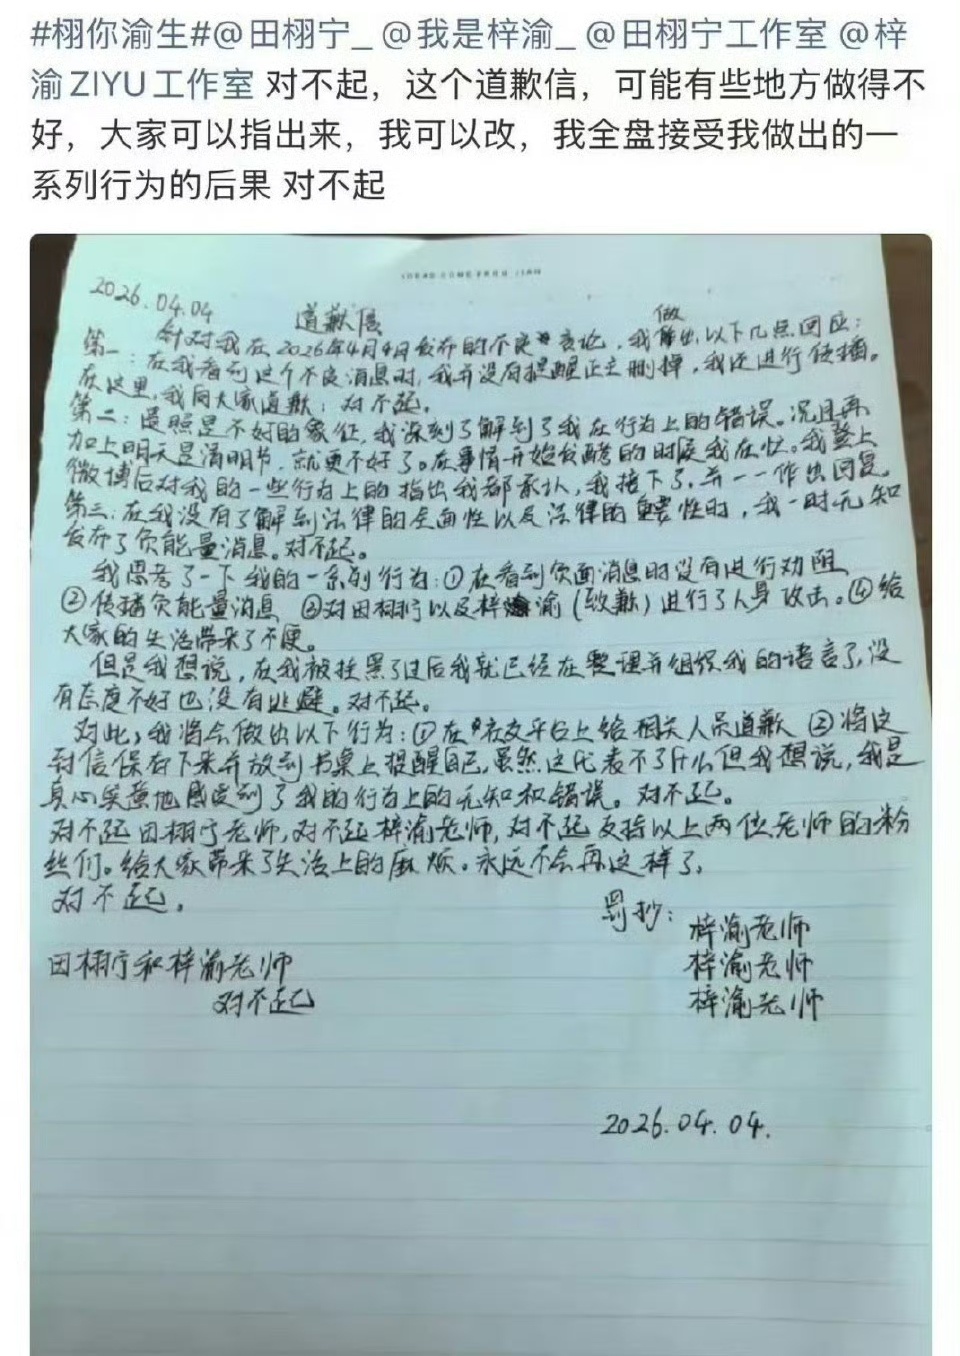 #栩你渝生#@田栩宁_ @我是梓渝_ @田栩宁工作室 @梓
渝ZIYU工作室 对不起，这个道歉信，可能有些地方做得不
好，大家可以指出来，我可以改，我全盘接受我做出的一
系列行为的后果 对不起
2026.04.04
道歉信
针对我在2026年4月4日发布的不良言论，我做出以下几点回应：
第一：在我看到这个不良消息时，我并没有提醒正主删掉，我还进行传播。
在这里，我向大家道歉：对不起。
第二：遗照是不好的象征，我深刻了解到了我在行为上的错误。况且再
加上明天是清明节，就更不好了。在事情开始发酵的时候我在忙。我登上
微博后对我的一些行为上的指出我都承认，我接下了，并一一作出回复。
第三：在我没有了解到法律的全面性以及法律的重要性时，我一时无知
发布了负能量消息。对不起。
我思考了一下我的一系列行为：①在看到负面消息时没有进行劝阻
②传播负能量消息 ③对田栩宁以及梓渝（致歉）进行了人身攻击。④给
大家的生活带来了不便。
但是我想说，在我被挂黑了过后我就已经在整理并组织我的语言了，没
有态度不好也没有逃避。对不起。
对此，我将会做出以下行为：①在社交平台上给相关人员道歉 ②将这
封信保存下来并放到书桌上提醒自己，虽然这代表不了什么但我想说，我是
真心实意地感受到了我的行为上的无知和错误。对不起。
对不起田栩宁老师，对不起梓渝老师，对不起支持以上两位老师的粉
丝们。给大家带来了生活上的麻烦。永远不会再这样了，
对不起。
罚抄：梓渝老师
梓渝老师
梓渝老师
田栩宁和梓渝老师
对不起
2026.04.04.